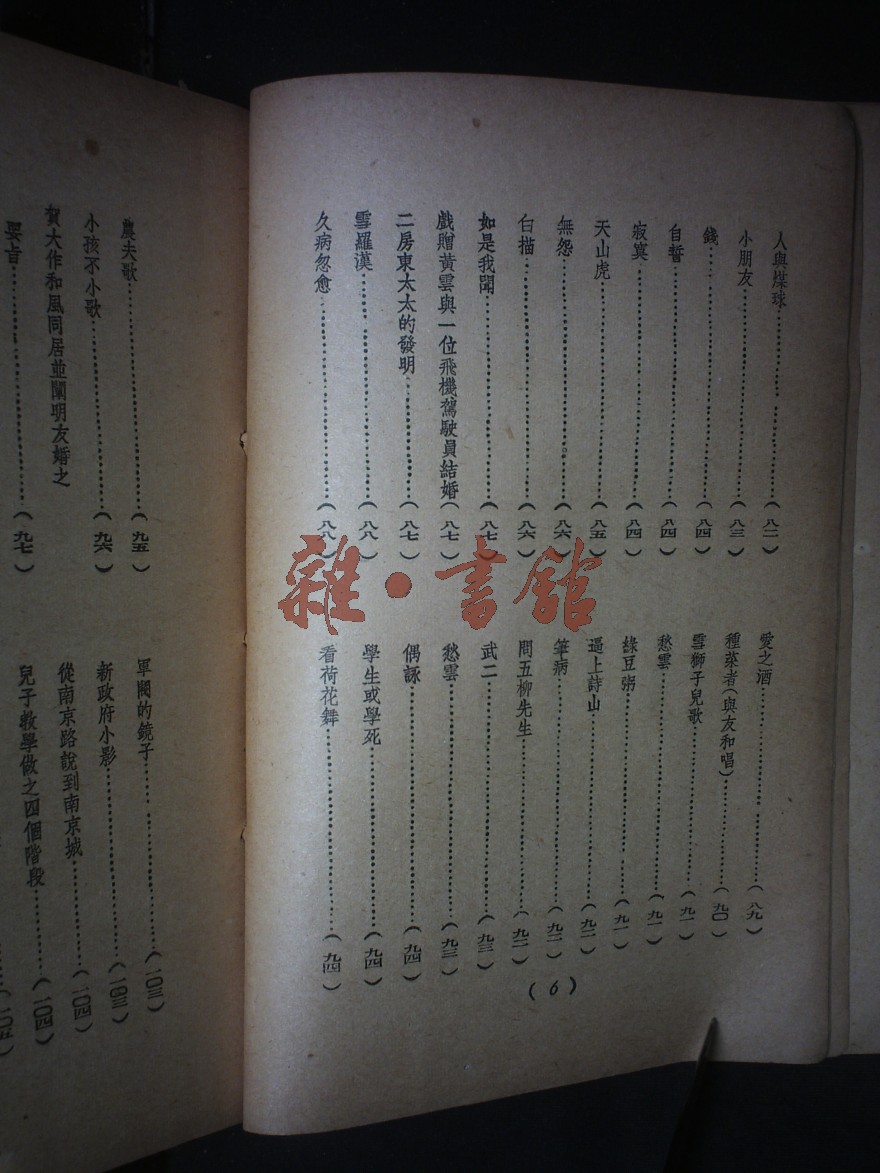 人與煤球………（八二）
小朋友………（八三）
錢………（八四）
自誓………（八四）
寂寞………（八四）
天山虎………（八五）
無怨………（八六）
白描………（八六）
如是我聞………（八七）
戲贈黃雲與一位飛機駕駛員結婚（八七）
二房東太太的發明………（八七）
雪羅漢………（八八）
久病忽愈………（八八）
愛之酒………（八九）
種菜者（與友和唱）………（九〇）
雪獅子兒歌………（九一）
愁雲………（九一）
綠豆粥………（九一）
逼上詩山………（九二）
筆病………（九二）
問五柳先生………（九二）
武二………（九三）
愁雲………（九三）
偶詠………（九四）
學生或學死………（九四）
看荷花舞………（九四）
（6）
農夫歌………（九五）
小孩不小歌………（九六）
賀大作和風同居並闡明友婚之
要旨………（九七）
軍閥的鏡子………（一〇三）
新政府小影………（一〇三）
從南京路說到南京城………（一〇四）
兒子教學做之四個階段………（一〇四）
（一〇五）
雜·書館